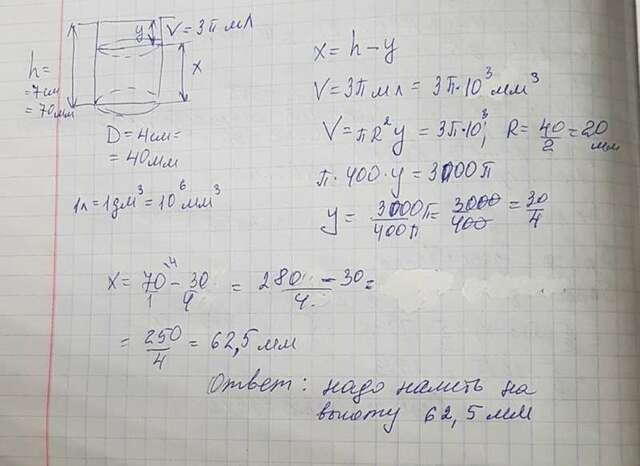 y V = 3π мл
h =
= 7см
= 70мм
x
D = 4см =
= 40мм
1л = 1дм³ = 10⁶ мм³
x = h - y
V = 3π мл = 3π·10³ мм³
V = πR²y = 3π·10³; R = 40/2 = 20 мм
π·400·y = 3000π
y = 3000π/400π = 3000/400 = 30/4
x = 70/1 \4 - 30/4 = 280 - 30/4 =
= 250/4 = 62,5 мм
Ответ: надо налить на
высоту 62,5 мм